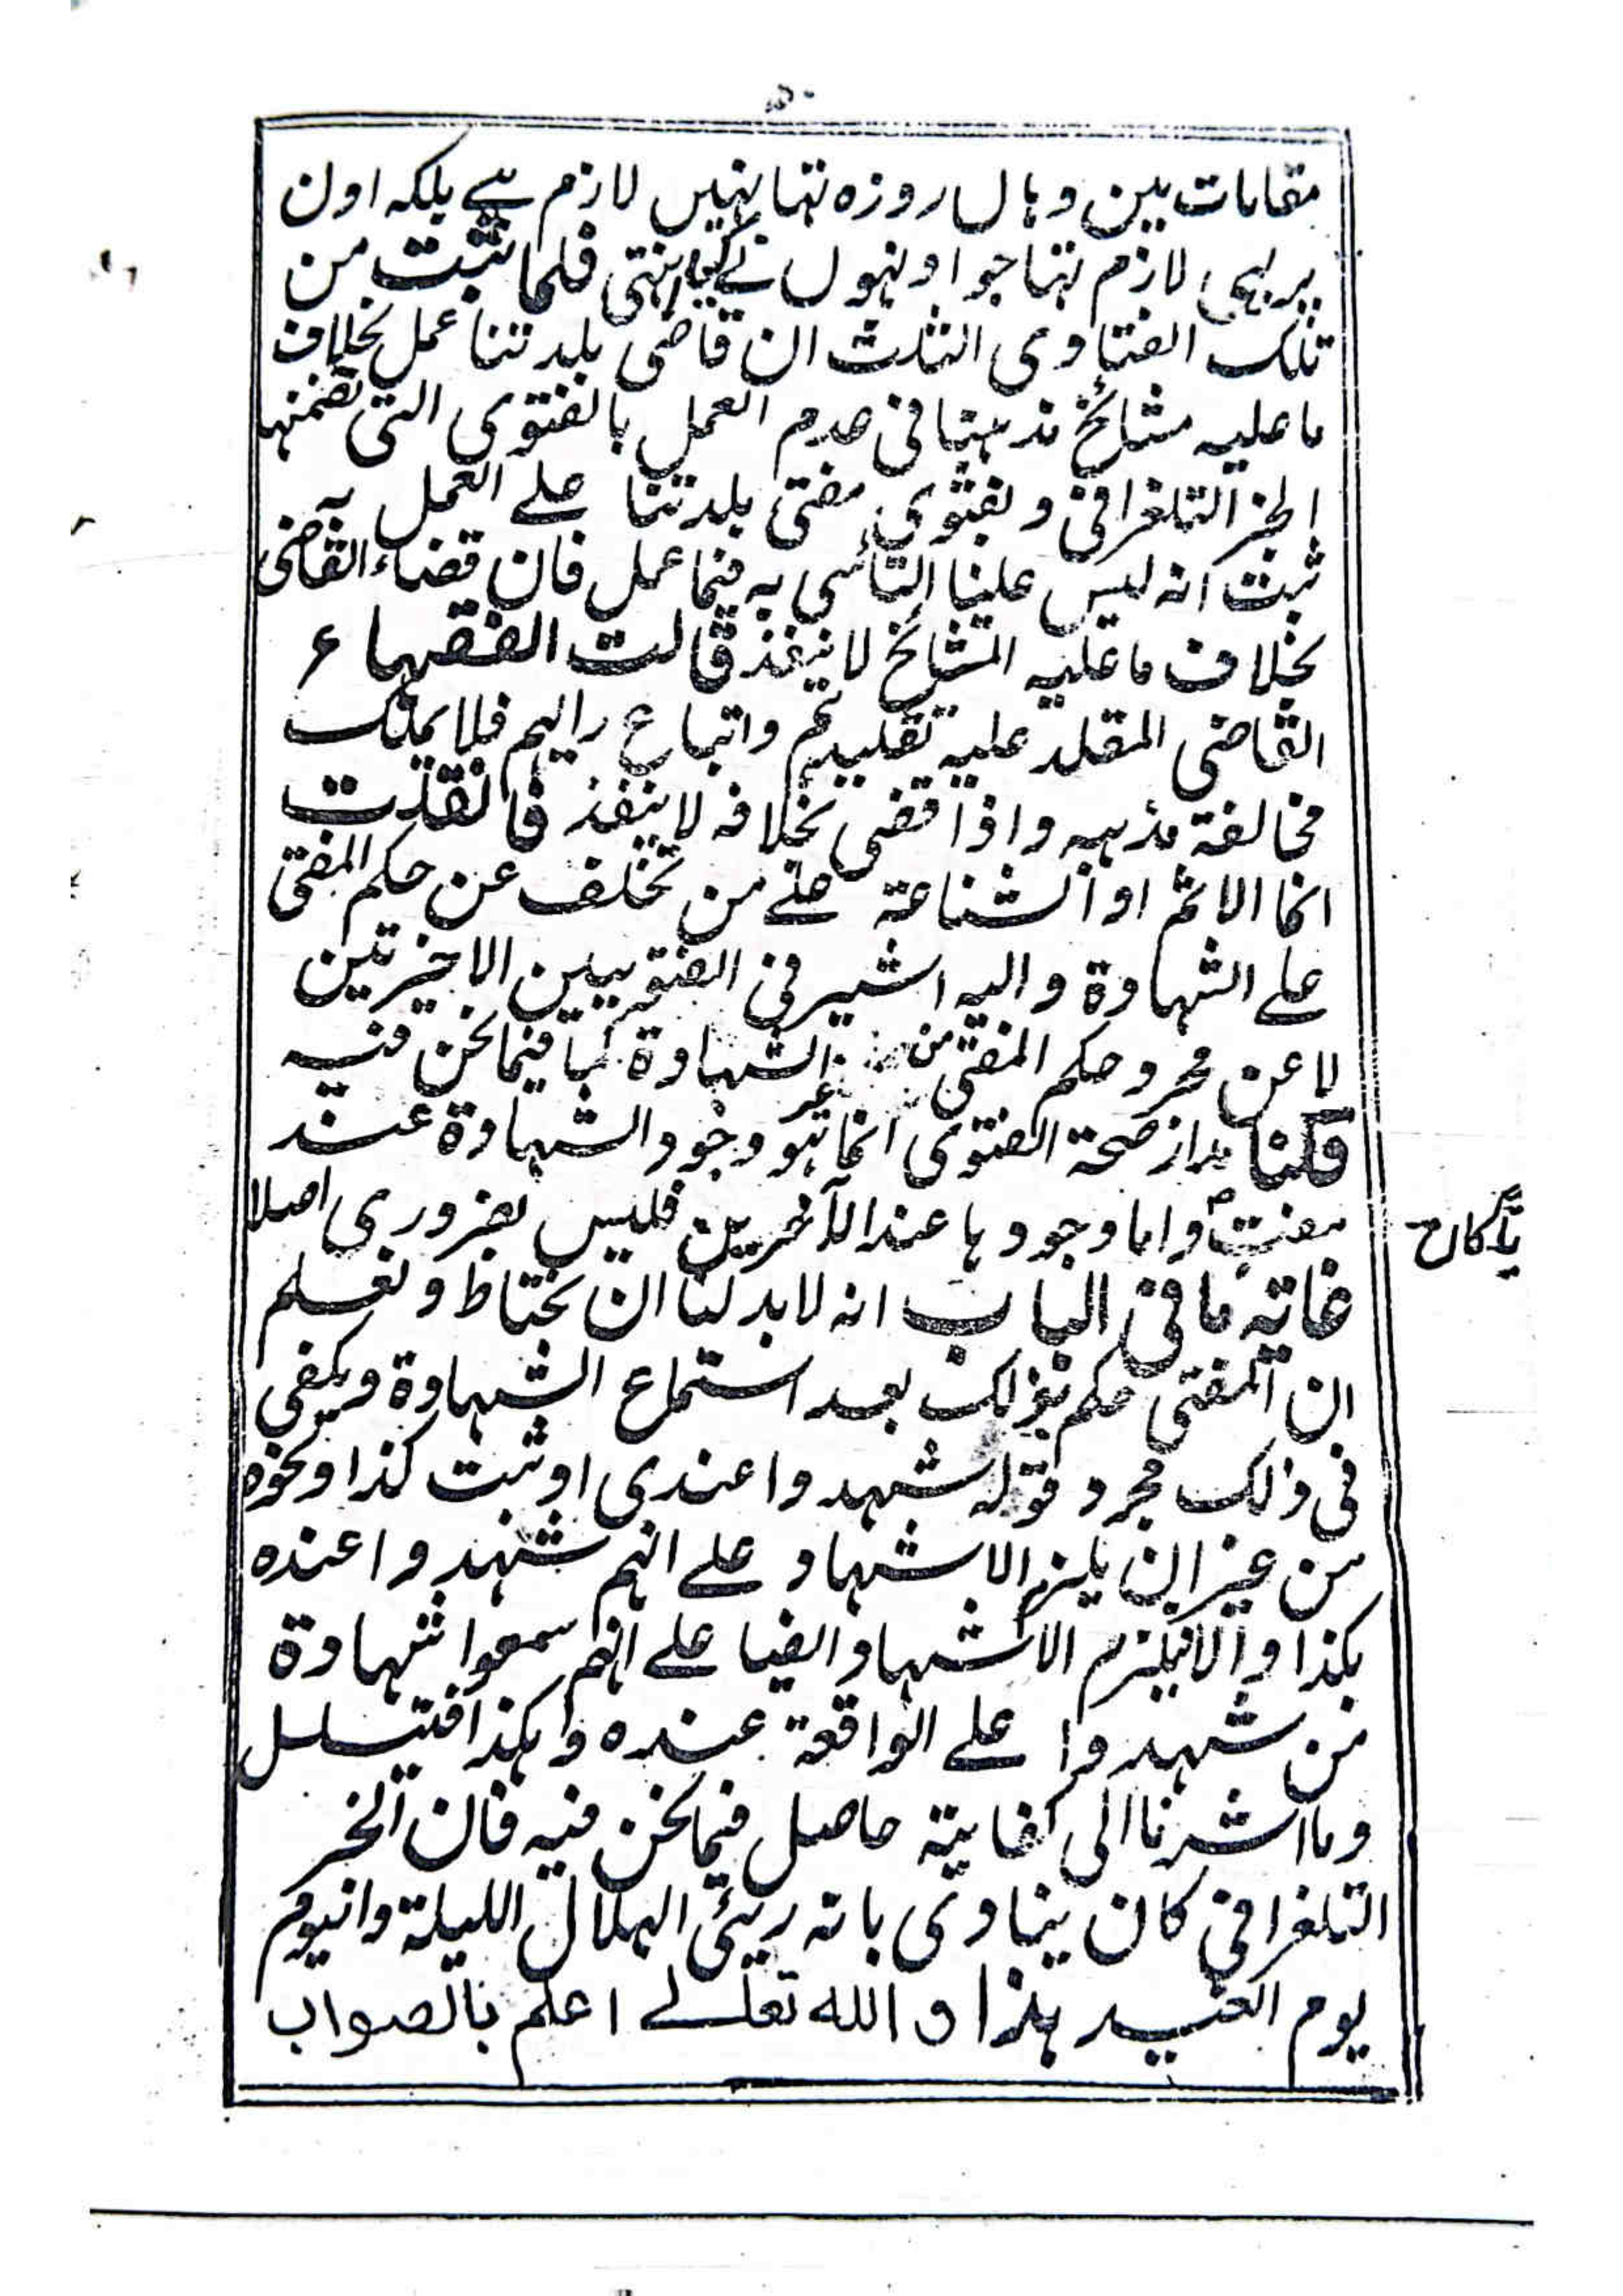 ۵۰
مقامات بین وہاں روزہ تہا نہیں لازم ہے بلکہ اون
پر یہی لازم تہا جو اونہوں نے کیا انتہی فلما ثبت من
تلک الفتاوی الثلث ان قاضی بلدتنا عمل بخلاف
ما علیہ مشائخ مذہبنا فی عدم العمل بالفتوی التی تضمنہا
الخبر التلغرافی و بفتوی مفتی بلدتنا علے العمل بہ
ثبت انہ لیس علینا التأسی بہ فیما عمل فان قضاء القاضی
بخلاف ما علیہ المشائخ لا ینفذ قالت الفقہاء
القاضی المقلد علیہ تقلیدہم واتباع رایہم فلا یملک
مخالفة مذہبہ واذا قضی بخلافہ لا ینفذ فان قلت
انما الاثم او الشناعة علے من تخلف عن حکم المفتی
علے الشہادة والیہ اشیر فی الفتویین الاخیرتین
لا عن مجرد حکم المفتی من غیر الشہادة کما فیما نحن فیہ
قلنا مدار صحة الفتوی انما ہو وجود الشہادة عند
مفت واما وجودہا عند الآخرین فلیس بضروری اصلا
غایة ما فی الباب انہ لا بد لنا ان نحتاط و نعلم
ان المفتی حکم بذلک بعد استماع الشہادة ویکفی
فی ذلک مجرد قولہ شہدوا عندی او ثبت کذا ونحوہ
من غیر ان یلزم الاشہاد علے انہم شہدوا عندہ
بکذا والا فیلزم الاشہاد ایضا علے انہم سمعوا شہادة
من شہدوا علے الواقعة عندہ وہکذا فیتسلسل
وما اشرنا الی کفایتہ حاصل فیما نحن فیہ فان الخبر
التلغرافی کان ینادی بانہ رئی الہلال اللیلة والیوم
یوم العید ہذا و اللہ تعالے اعلم بالصواب